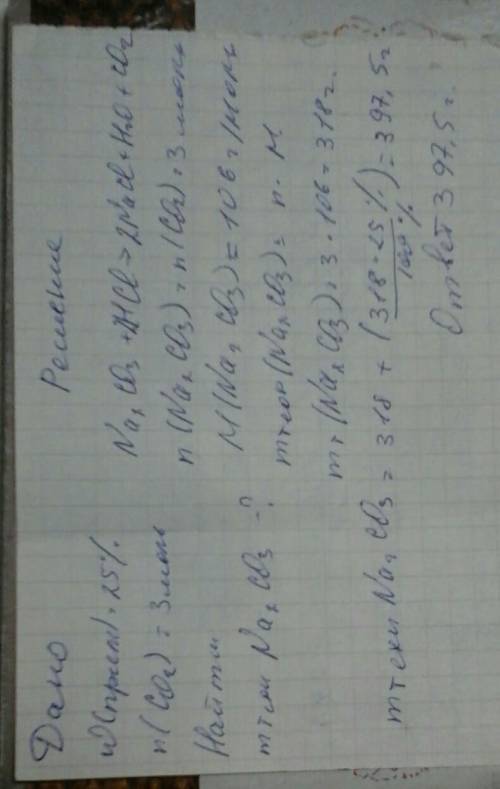 Дано
W(прим) = 25%
n(CO2) = 3 моль
Найти
mтехн Na2CO3 - ?
Решение
Na2CO3 + 2HCl = 2NaCl + H2O + CO2
n(Na2CO3) = n(CO2) = 3 моль
M(Na2CO3) = 106 г/моль
mтеор(Na2CO3) = n · M
mт(Na2CO3) = 3 · 106 = 318 г.
mтехн Na2CO3 = 318 + (318 · 25% / 100%) = 397,5 г
Ответ 397,5 г.